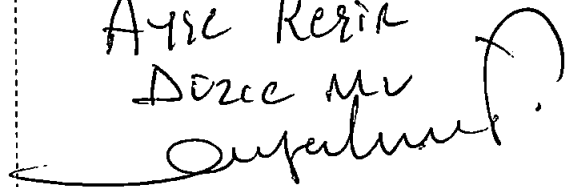 Ayşe Keşir
Düzce MV